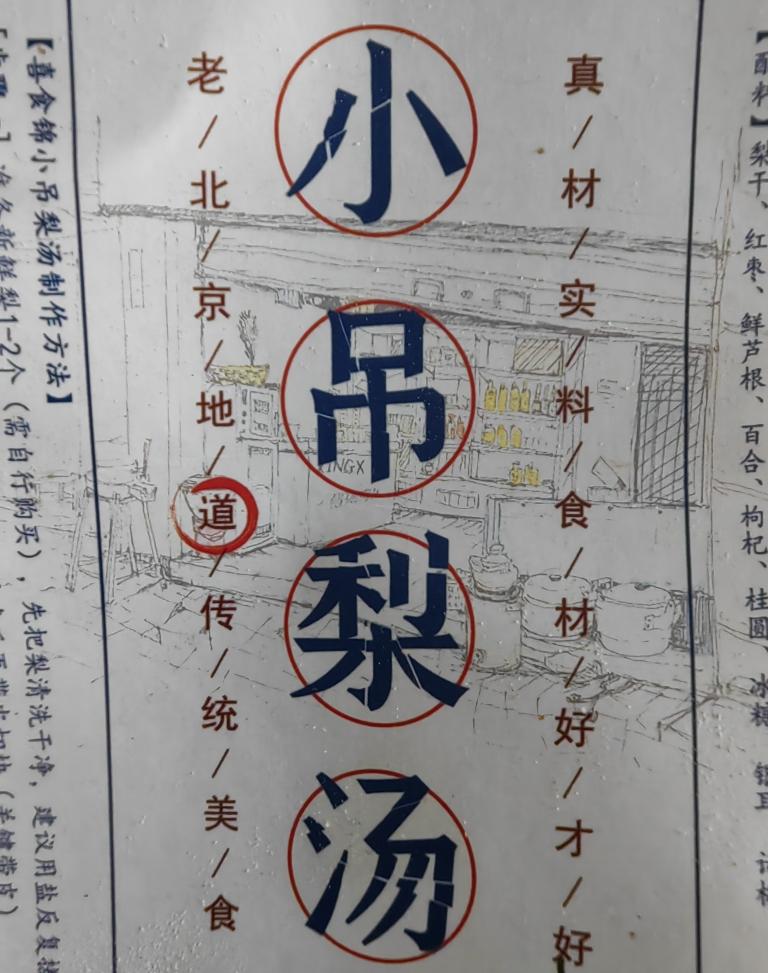 【配料】梨干、红枣、鲜芦根、百合、枸杞、桂圆、冰糖
真/材/实/料/食/材/好/才/好
小吊梨汤
老/北/京/地/道/传/统/美/食
【喜食锦小吊梨汤制作方法】
准备新鲜梨1-2个（需自行购买），先把梨清洗干净，建议用盐反复搓
KINGX